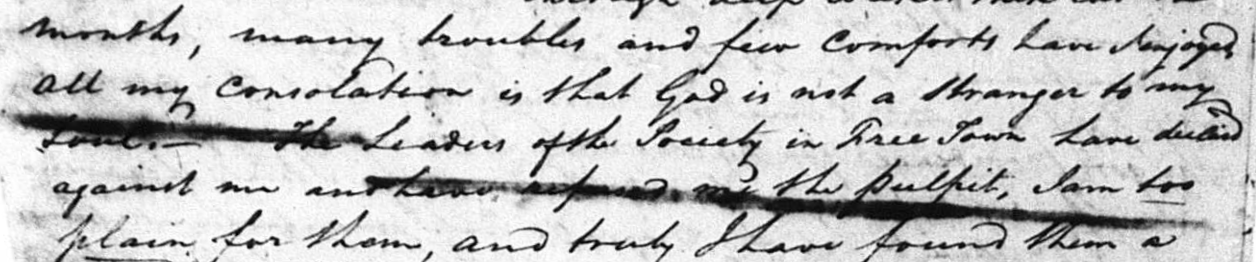 months, many troubles and few comforts have I enjoyed
all my Consolation is that God is not a Stranger to my
Soul.— The Leaders of the Society in Free Town have decided
against me and have refused me the Pulpit, I am too
plain for them, and truly I have found them a